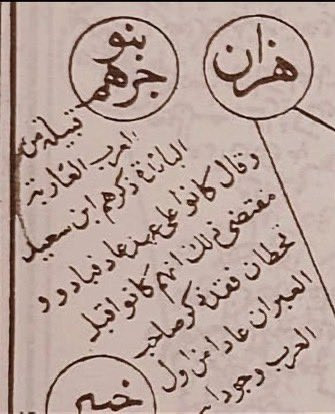 هزان
بنو
جرهم
قبيلة من
العرب العاربة
البائدة ذكرهم ابن سعيد
وقال كانوا على عهد عاد فبادوو
مقتضى ذلك انهم كانوا قبل
قحطان فقد ذكر صاحب
العبران عادا من اول
العرب وجودا